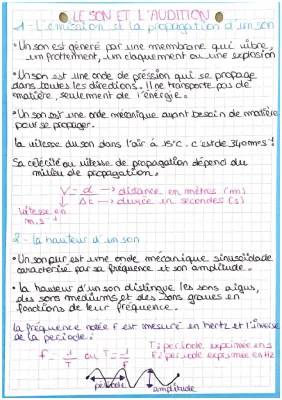 LE SON ET L'AUDITION
1 - L'émission et la propagation d'un son
• Un son est généré par une membrane qui vibre,
un frottement, un claquement ou une explosion
• Un son est une onde de pression qui se propage
dans toutes les directions. Il ne transporte pas de
matière, seulement de l'énergie.
• Un son est une onde mécanique ayant besoin de matière
pour se propager.
La vitesse du son dans l'air à 15°C. c'est de 340 m.s⁻¹
Sa célérité ou vitesse de propagation dépend du
milieu de propagation.
V = d → distance en mètres (m)
Δt → durée en secondes (s)
Vitesse en
m.s⁻¹
2 - La hauteur d'un son
• Un son pur est une onde mécanique sinusoïdale
caractérisé par sa fréquence et son amplitude.
• La hauteur d'un son distingue les sons aigus,
des sons mediums et des sons graves en
fonctions de leur fréquence.
La fréquence notée F est mesuré en hertz et l'inverse
de la période.
f = 1/T ou T = 1/F
T: période exprimée en s
F: période exprimée en Hz
période
amplitude